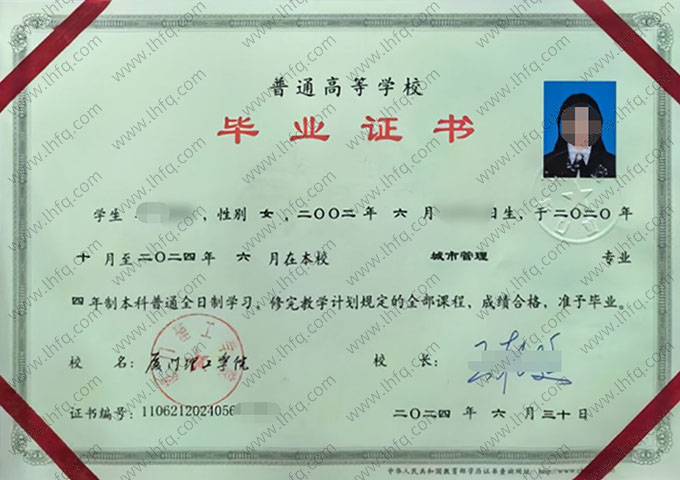 普通高等学校
毕业证书
学生 ，性别 女 ，二〇〇二年 六 月 日生，于二〇二〇年
十 月至二〇二四年 六 月在本校 城市管理 专业
四年制本科普通全日制学习，修完教学计划规定的全部课程，成绩合格，准予毕业。
校 名：厦门理工学院 校 长：
证书编号：1106212024056 二〇二四 年 六 月 三十日
中华人民共和国教育部学历证书查询网址：http://www.ch
www.lhfq.com